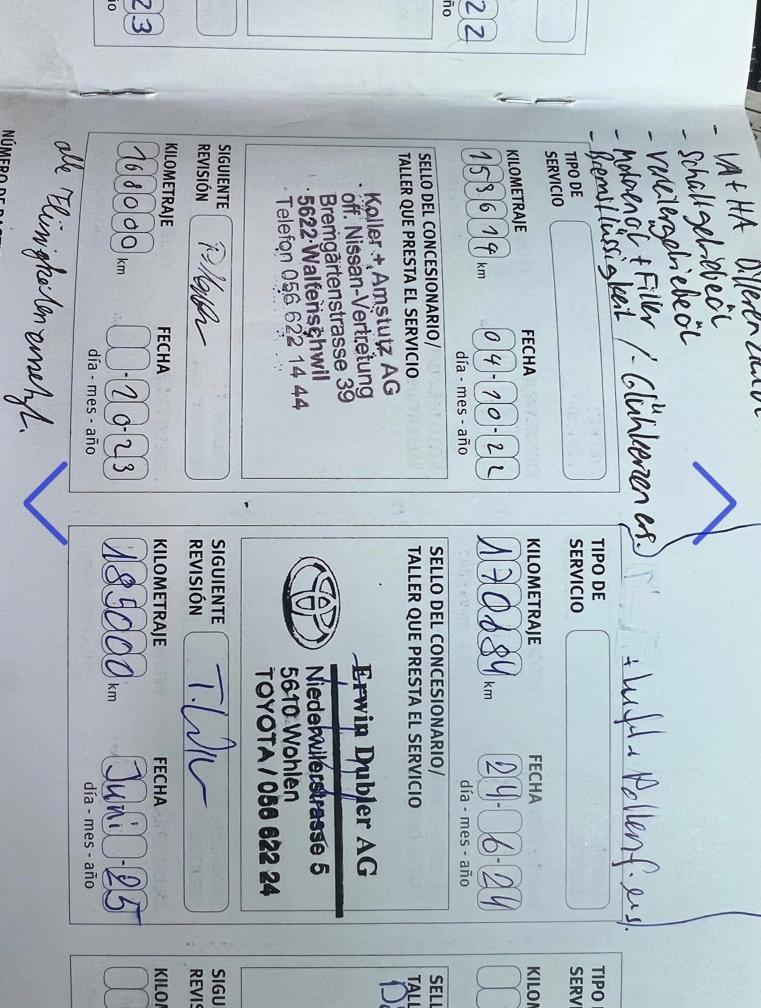 - VA + HA
- Schaltgetriebeöl
- Verteilergetriebeöl
- Motorenöl + Filter / - Glühkerzen ers.
- Bremsflüssigkeit
+ Luft + Pollenf. ers.
22
23
TIPO DE
SERVICIO
KILOMETRAJE
153619 km
FECHA
04-10-22
día - mes - año
SELLO DEL CONCESIONARIO/
TALLER QUE PRESTA EL SERVICIO
Koller + Amstutz AG
off. Nissan-Vertretung
Bremgartenstrasse 39
5622 Waltenschwil
Telefon 056 622 14 44
SIGUIENTE
REVISIÓN
KILOMETRAJE
168000 km
FECHA
-10-23
día - mes - año
alle Flüssigkeiten ersetzt.
TIPO DE
SERVICIO
KILOMETRAJE
170184 km
FECHA
24-6-24
día - mes - año
SELLO DEL CONCESIONARIO/
TALLER QUE PRESTA EL SERVICIO
Erwin Dubler AG
Niederwilerstrasse 5
5610 Wohlen
TOYOTA / 056 622 24
SIGUIENTE
REVISIÓN
KILOMETRAJE
185000 km
FECHA
Juni -25
día - mes - año
TIPO
SERV
KILO
SELL
TALL
SIGU
REVIS
KILOM